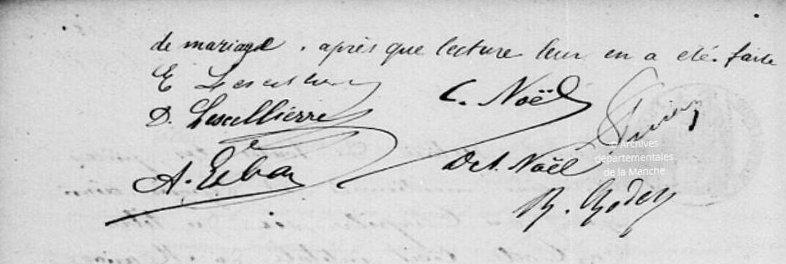 de mariage. après que lecture leur en a été faite
E Lescellierre
D. Lescellierre
C. Noël
A. Esbar
Oct. Noël
© Archives
départementales
de la Manche